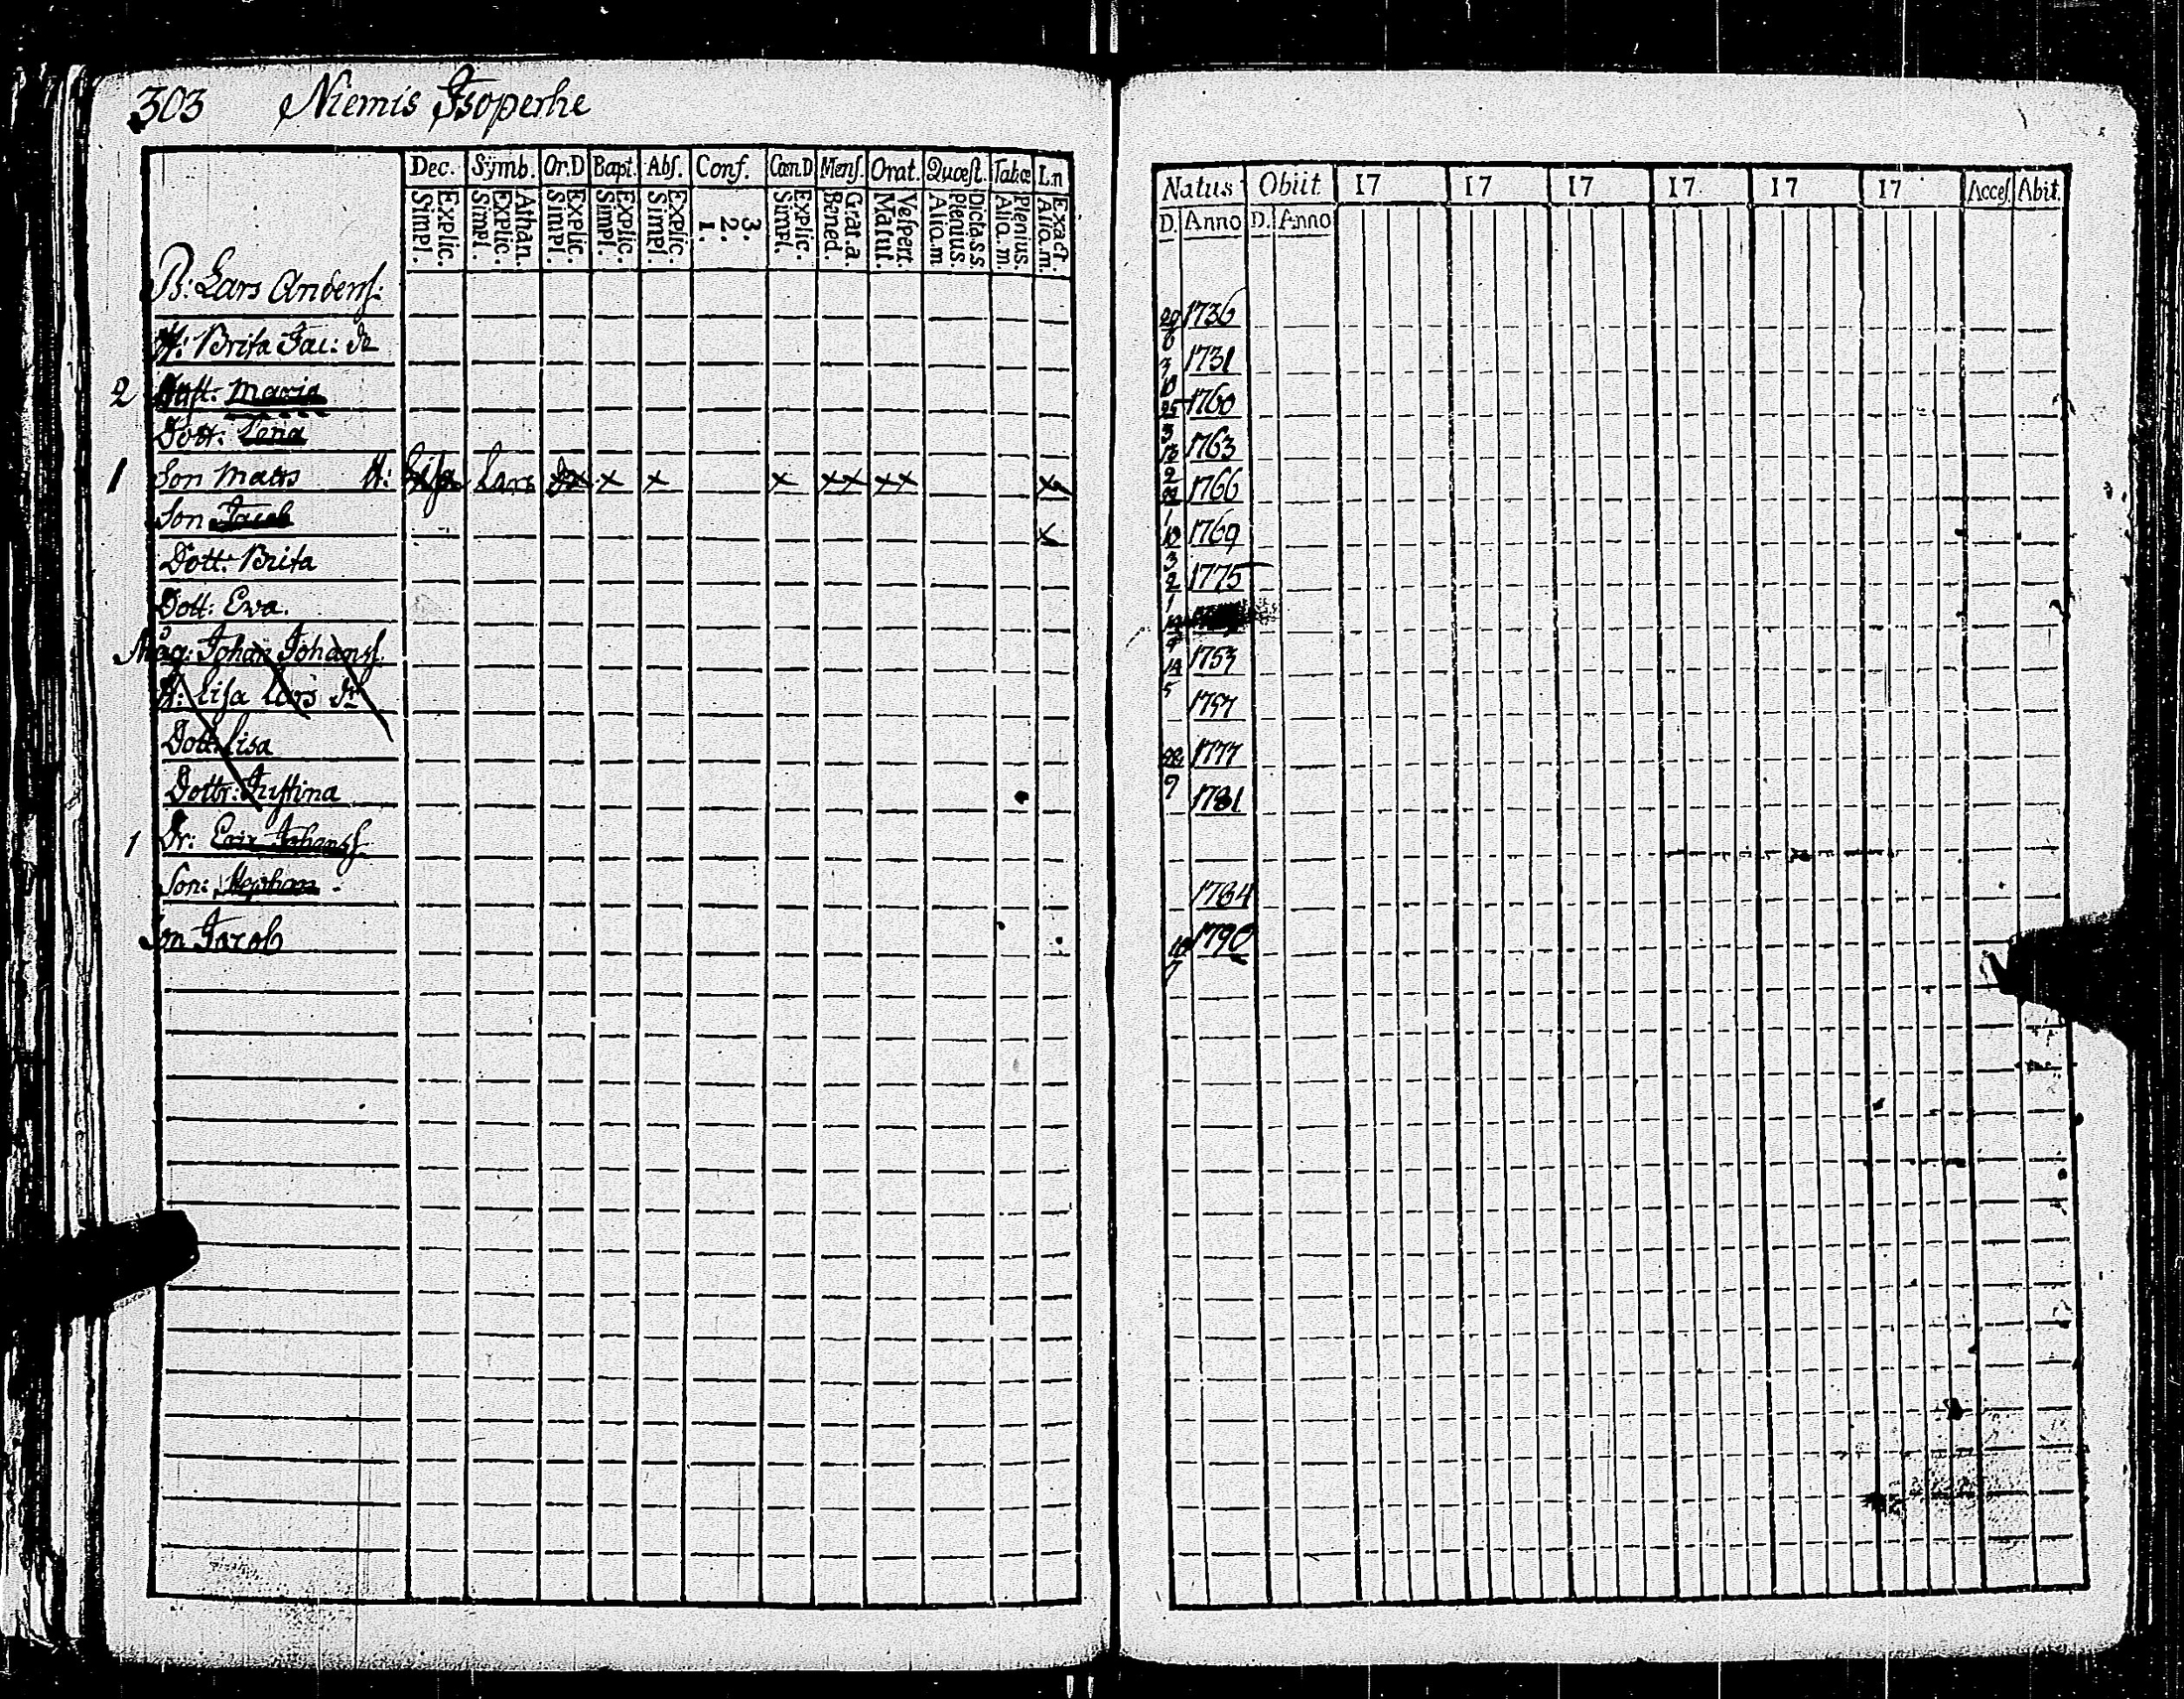 303 Niemis Isoperhe
Dec. Symb. Or.D Bapt. Abs. Conf. Cœn.D Mens. Orat. Quœst. Tab.œ Ln
Explic. Simpl. Athan. Explic. Simpl. Explic. Simpl. Explic. Simpl. Explic. Simpl. 3. 2. 1. Explic. Simpl. Grat.a. Bened. Vespert. Matut. Dicta.s.s. Plenius. Aliq.m Plenius. Aliq.m. Exact. Aliq.m.
B: Lars Anderss:
H: Brita Jac: dr
2 Maria
Dott:
1 Son Mats H: Lisa Lars dr x x x xx xx x
Son Jacob x
Dott: Brita
Dott: Eva.
Måg: Johan Johanss.
H: Lisa Lars dr
Dott: Lisa
Dottr: Justina
1 Dr: Eric Johanss.
Son: Stephan
Son Jacob
Natus Obiit 17 17 17 17 17 17 Acces. Abit.
D. Anno D. Anno
20 6 1736
3 10 1731
25 3 1760
13 2 1763
22 1 1766
10 3 1769
2 1 1775
9
14 5 1753
1757
22 9 1777
1781
1784
10 7 1790